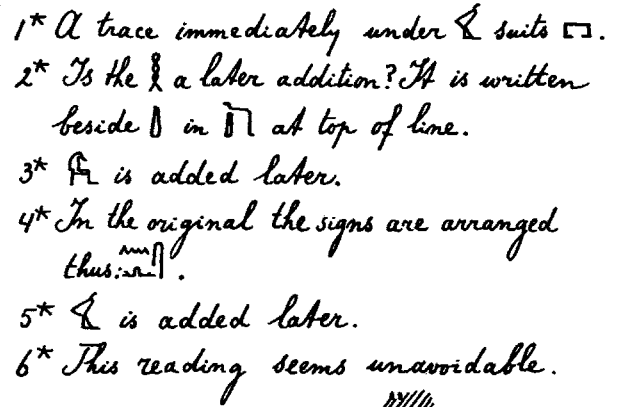 1* A trace immediately under 𓀁 suits 𓉐.
2* Is the 𓎛 a later addition? It is written
beside 𓊹 in at top of line.
3* is added later.
4* In the original the signs are arranged
thus: .
5* is added later.
6* This reading seems unavoidable.